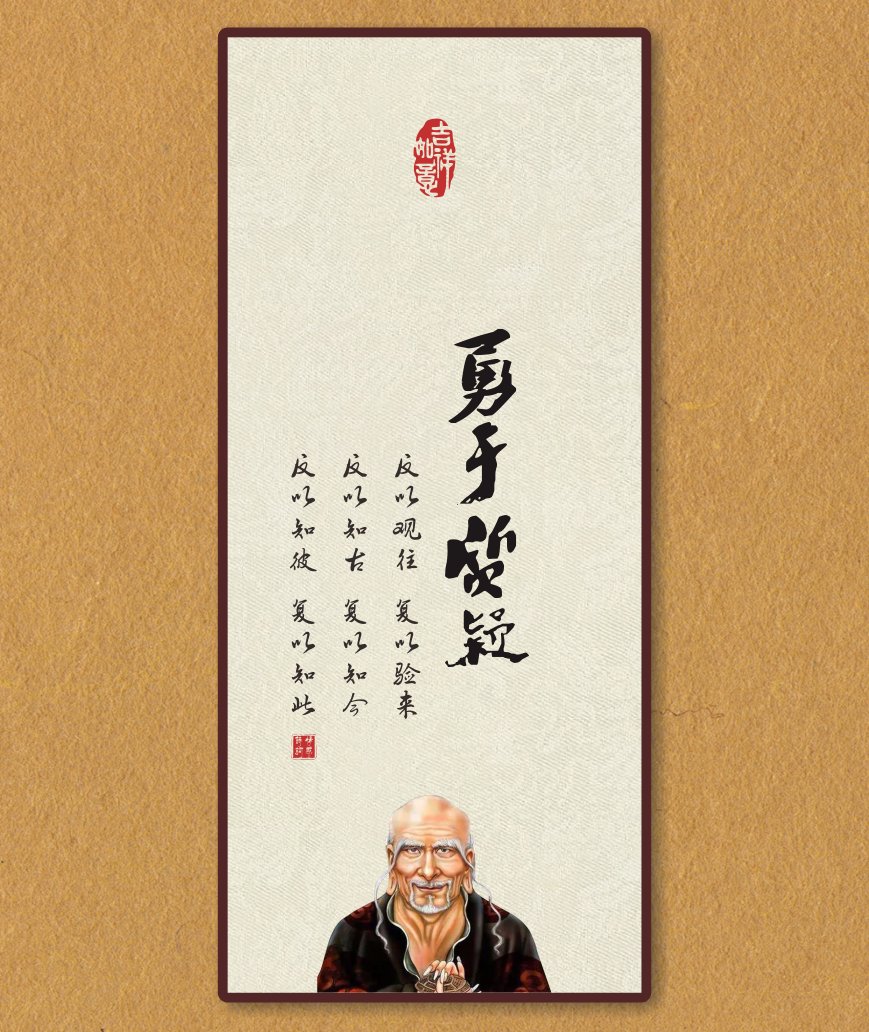 吉祥
如意
勇于质疑
反以观往 复以验来
反以知古 复以知今
反以知彼 复以知此